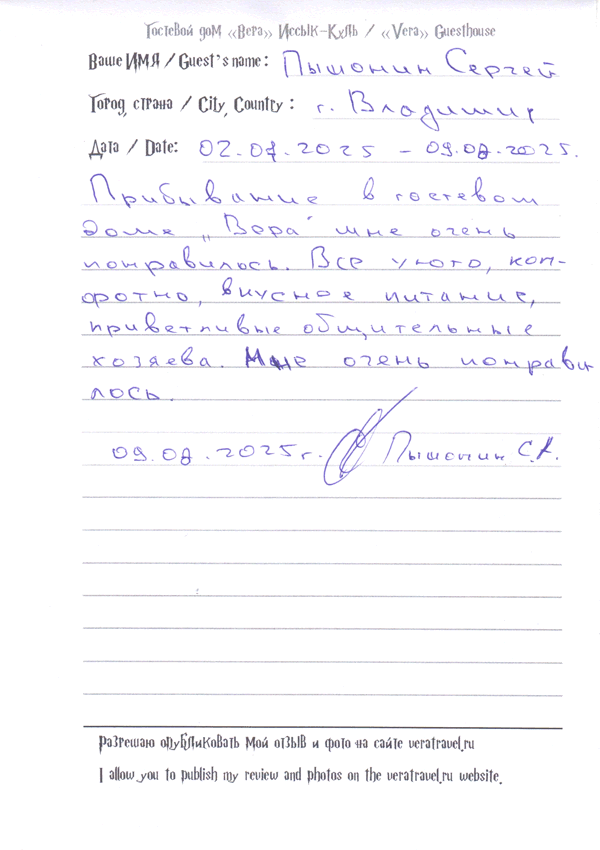 Гостевой дом «Вера» Иссык-Куль / «Vera» Guesthouse
Ваше ИМЯ / Guest's name: Пышонин Сергей
Город, страна / City, Country: г. Владимир
Дата / Date: 02.08.2025 - 09.08.2025.
Прибывание в гостевом
доме „Вера" мне очень
понравилось. Все уютно, ком-
фортно, вкусное питание,
приветливые общительные
хозяева. Мне очень понрави
лось.
09.08.2025г. Пышонин С.К.
Разрешаю опубликовать мой отзыв и фото на сайте veratravel.ru
I allow you to publish my review and photos on the veratravel.ru website.